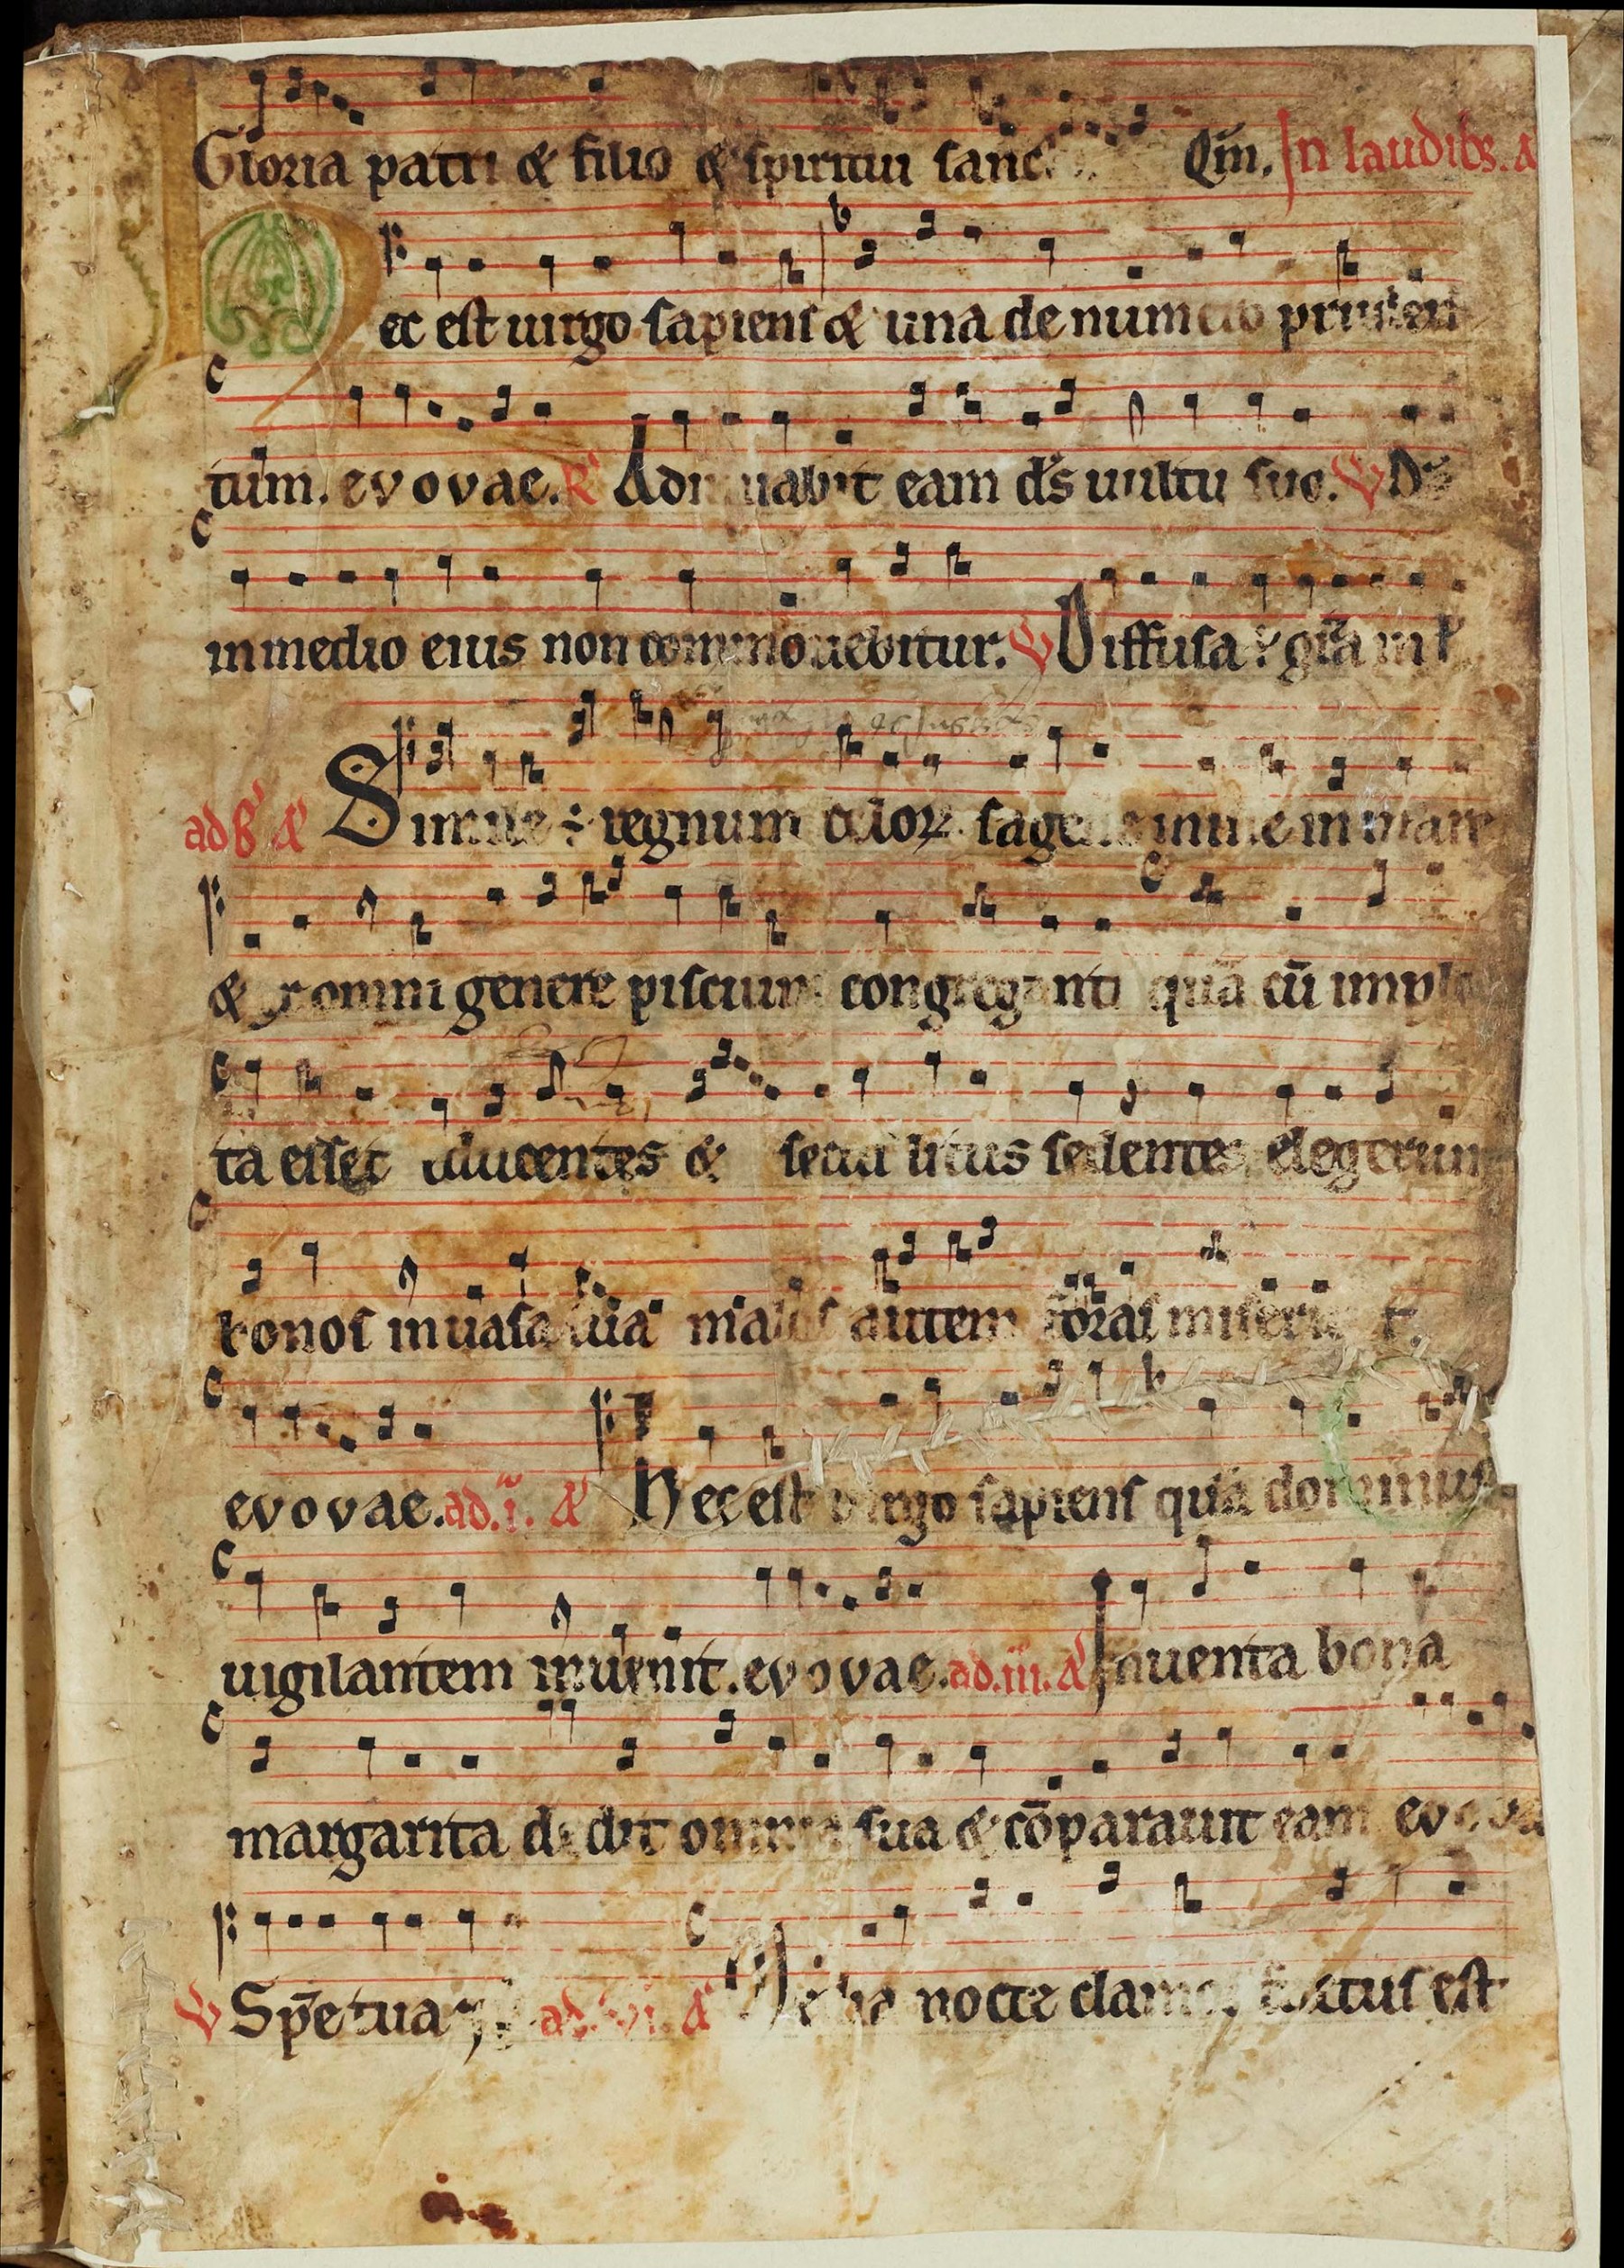 Gloria patri & filio & spiritui sanc Qm̄. In laudib᷒. A
ec est uirgo sapiens & una de numero pruden
tum. evovae. R' Adiuuabit eam ds̄ uultu suo. V Ds̄
in medio eius non commouebitur. V Diffusa ÷ grā in l
ad B' A' Simile ÷ regnum celoꝝ sagene misse in mare
& ex omni genere piscium congreganti quā cū imple
ta esset educentes & secus litus sedentes elegerun
bonos in uasa sua malos autem foras miserunt.
evovae. ad .i. A' Hec est uirgo sapiens quā dominus
uigilantem inuenit. evovae. ad .iii. A' Inuenta bona
margarita dedit omnia sua & cōparauit eam evova
V Spē tua ad .vi. A' Media nocte clamor factus est